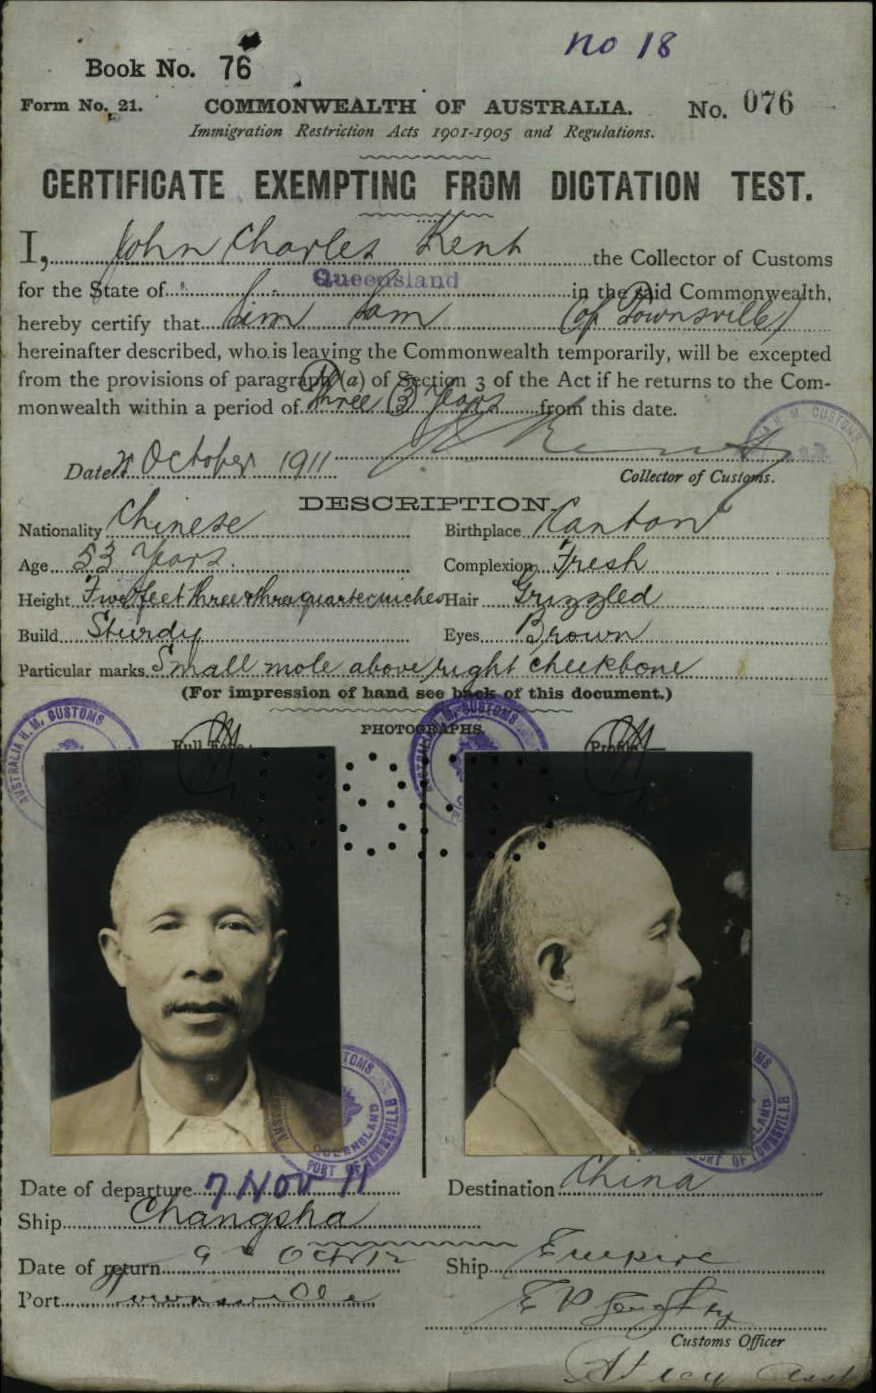 no 18
Book No. 76
Form No. 21. COMMONWEALTH OF AUSTRALIA. No. 076
Immigration Restriction Acts 1901-1905 and Regulations.
CERTIFICATE EXEMPTING FROM DICTATION TEST.
I, John Charles Kent the Collector of Customs
for the State of Queensland in the said Commonwealth,
hereby certify that Sam (of Townsville)
hereinafter described, who is leaving the Commonwealth temporarily, will be excepted
from the provisions of paragraph (a) of Section 3 of the Act if he returns to the Com-
monwealth within a period of three (3) Years from this date.
Date October 1911
Collector of Customs.
DESCRIPTION.
Nationality Chinese Birthplace Canton
Age 53 Years. Complexion Fresh
Height Five feet three & three quarter inches Hair Grizzled
Build Sturdy Eyes Brown
Particular marks Small mole above right cheekbone
(For impression of hand see back of this document.)
PHOTOGRAPHS.
Full Face: Profile
AUSTRALIA H. M. CUSTOMS
AUSTRALIA H. M. CUSTOMS
QUEENSLAND
PORT OF TOWNSVILLE
PORT OF TOWNSVILLE
Date of departure 7 NOV 11 Destination China
Ship Changsha
Date of return 9th Oct 12 Ship Empire
Port Townsville
Customs Officer